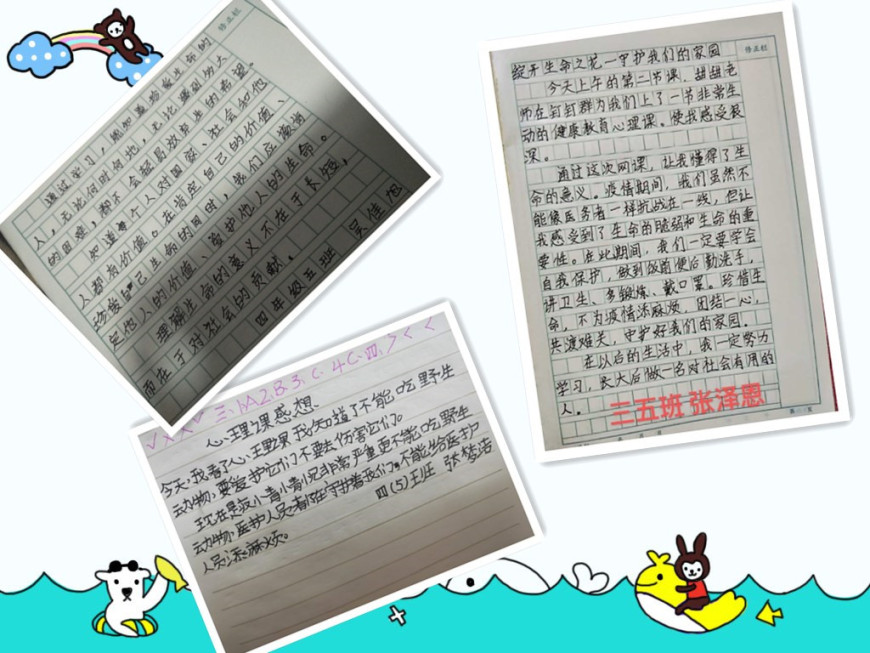 通过学习，我知道珍放生命的
人，无论何时何地，无论遇到多大
的困难，都不会轻易放弃生的希望。
知道每个人对国家、社会和他
人都有价值。在肯定自己的价值、
珍爱自己生命的同时，我们应懂得
肯定他人的价值、爱护他人的生命。
理确生命的意义不在于长短，
而在于对社会的贡献。
四年级五班 吴佳旭
√ X X √ 三、1A2.B.3.C.4.C.四、> < <
心理课感想
今天,我看了心理课我知道了不能吃野生
动物,要爱护它们不要去伤害它们。
现在是疫情情况非常严重更不能吃野生
动物,医护人员都在守护着我们,不能给医护
人员添麻烦。
四(5)班 张梦洁
修正栏
绽开生命之花一守护我们的家园
今天上午的第二节课，甜甜老
师在钉钉群为我们上了一节非常生
动的健康教育心理课。使我感受很
深。
通过这次网课，让我懂得了生
命的意义。疫情期间，我们虽然不
能像医务者一样抗战在一线，但让
我感受到了生命的脆弱和生命的重
要性。在此期间，我们一定要学会
自我保护，做到饭前便后勤洗手，
讲卫生、多锻炼、戴口罩。珍惜生
命，不为疫情添麻烦，团结一心，
共渡难关，守护好我们的家园。
在以后的生活中，我一定努力
学习，长大后做一名对社会有用的
人。
三五班 张泽恩